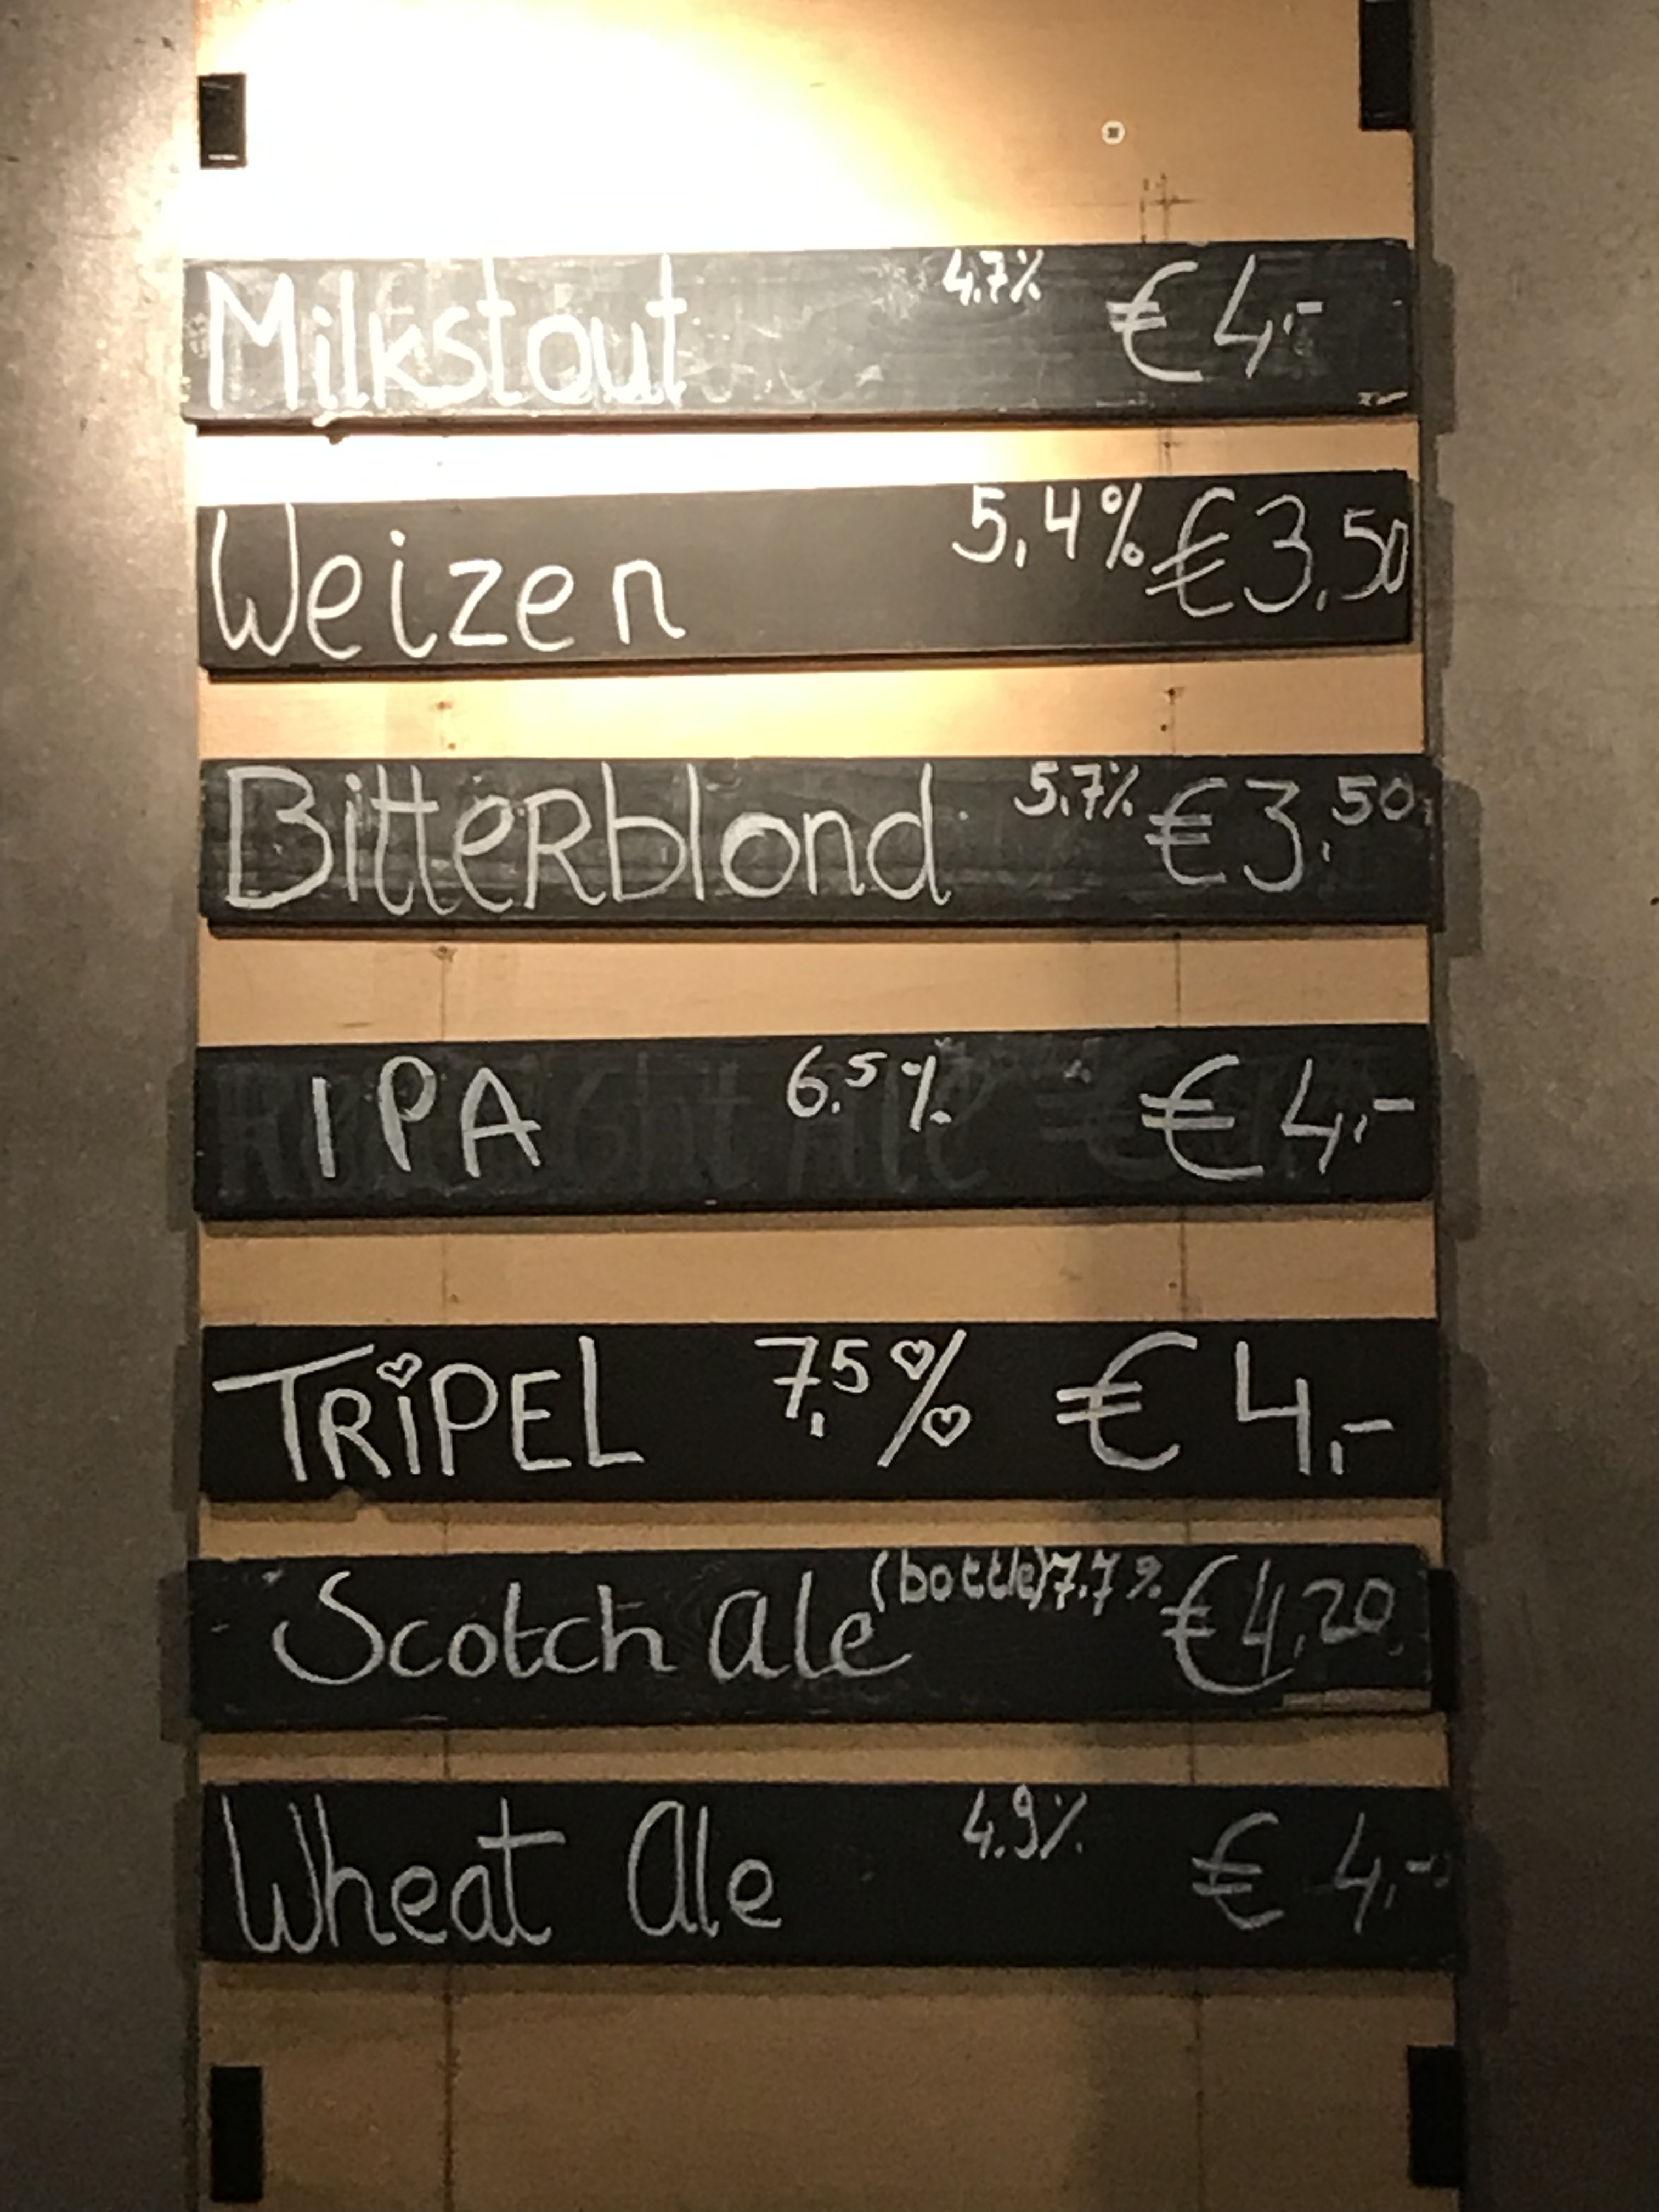 Milkstout 4.7% €4,-
Weizen 5,4% €3,50
Bitterblond 5.7% €3,50
IPA 6.5% €4,-
TRiPEL 7,5% €4,-
Scotch ale (bottle) 7.7% €4,20
Wheat ale 4.9% €4,-